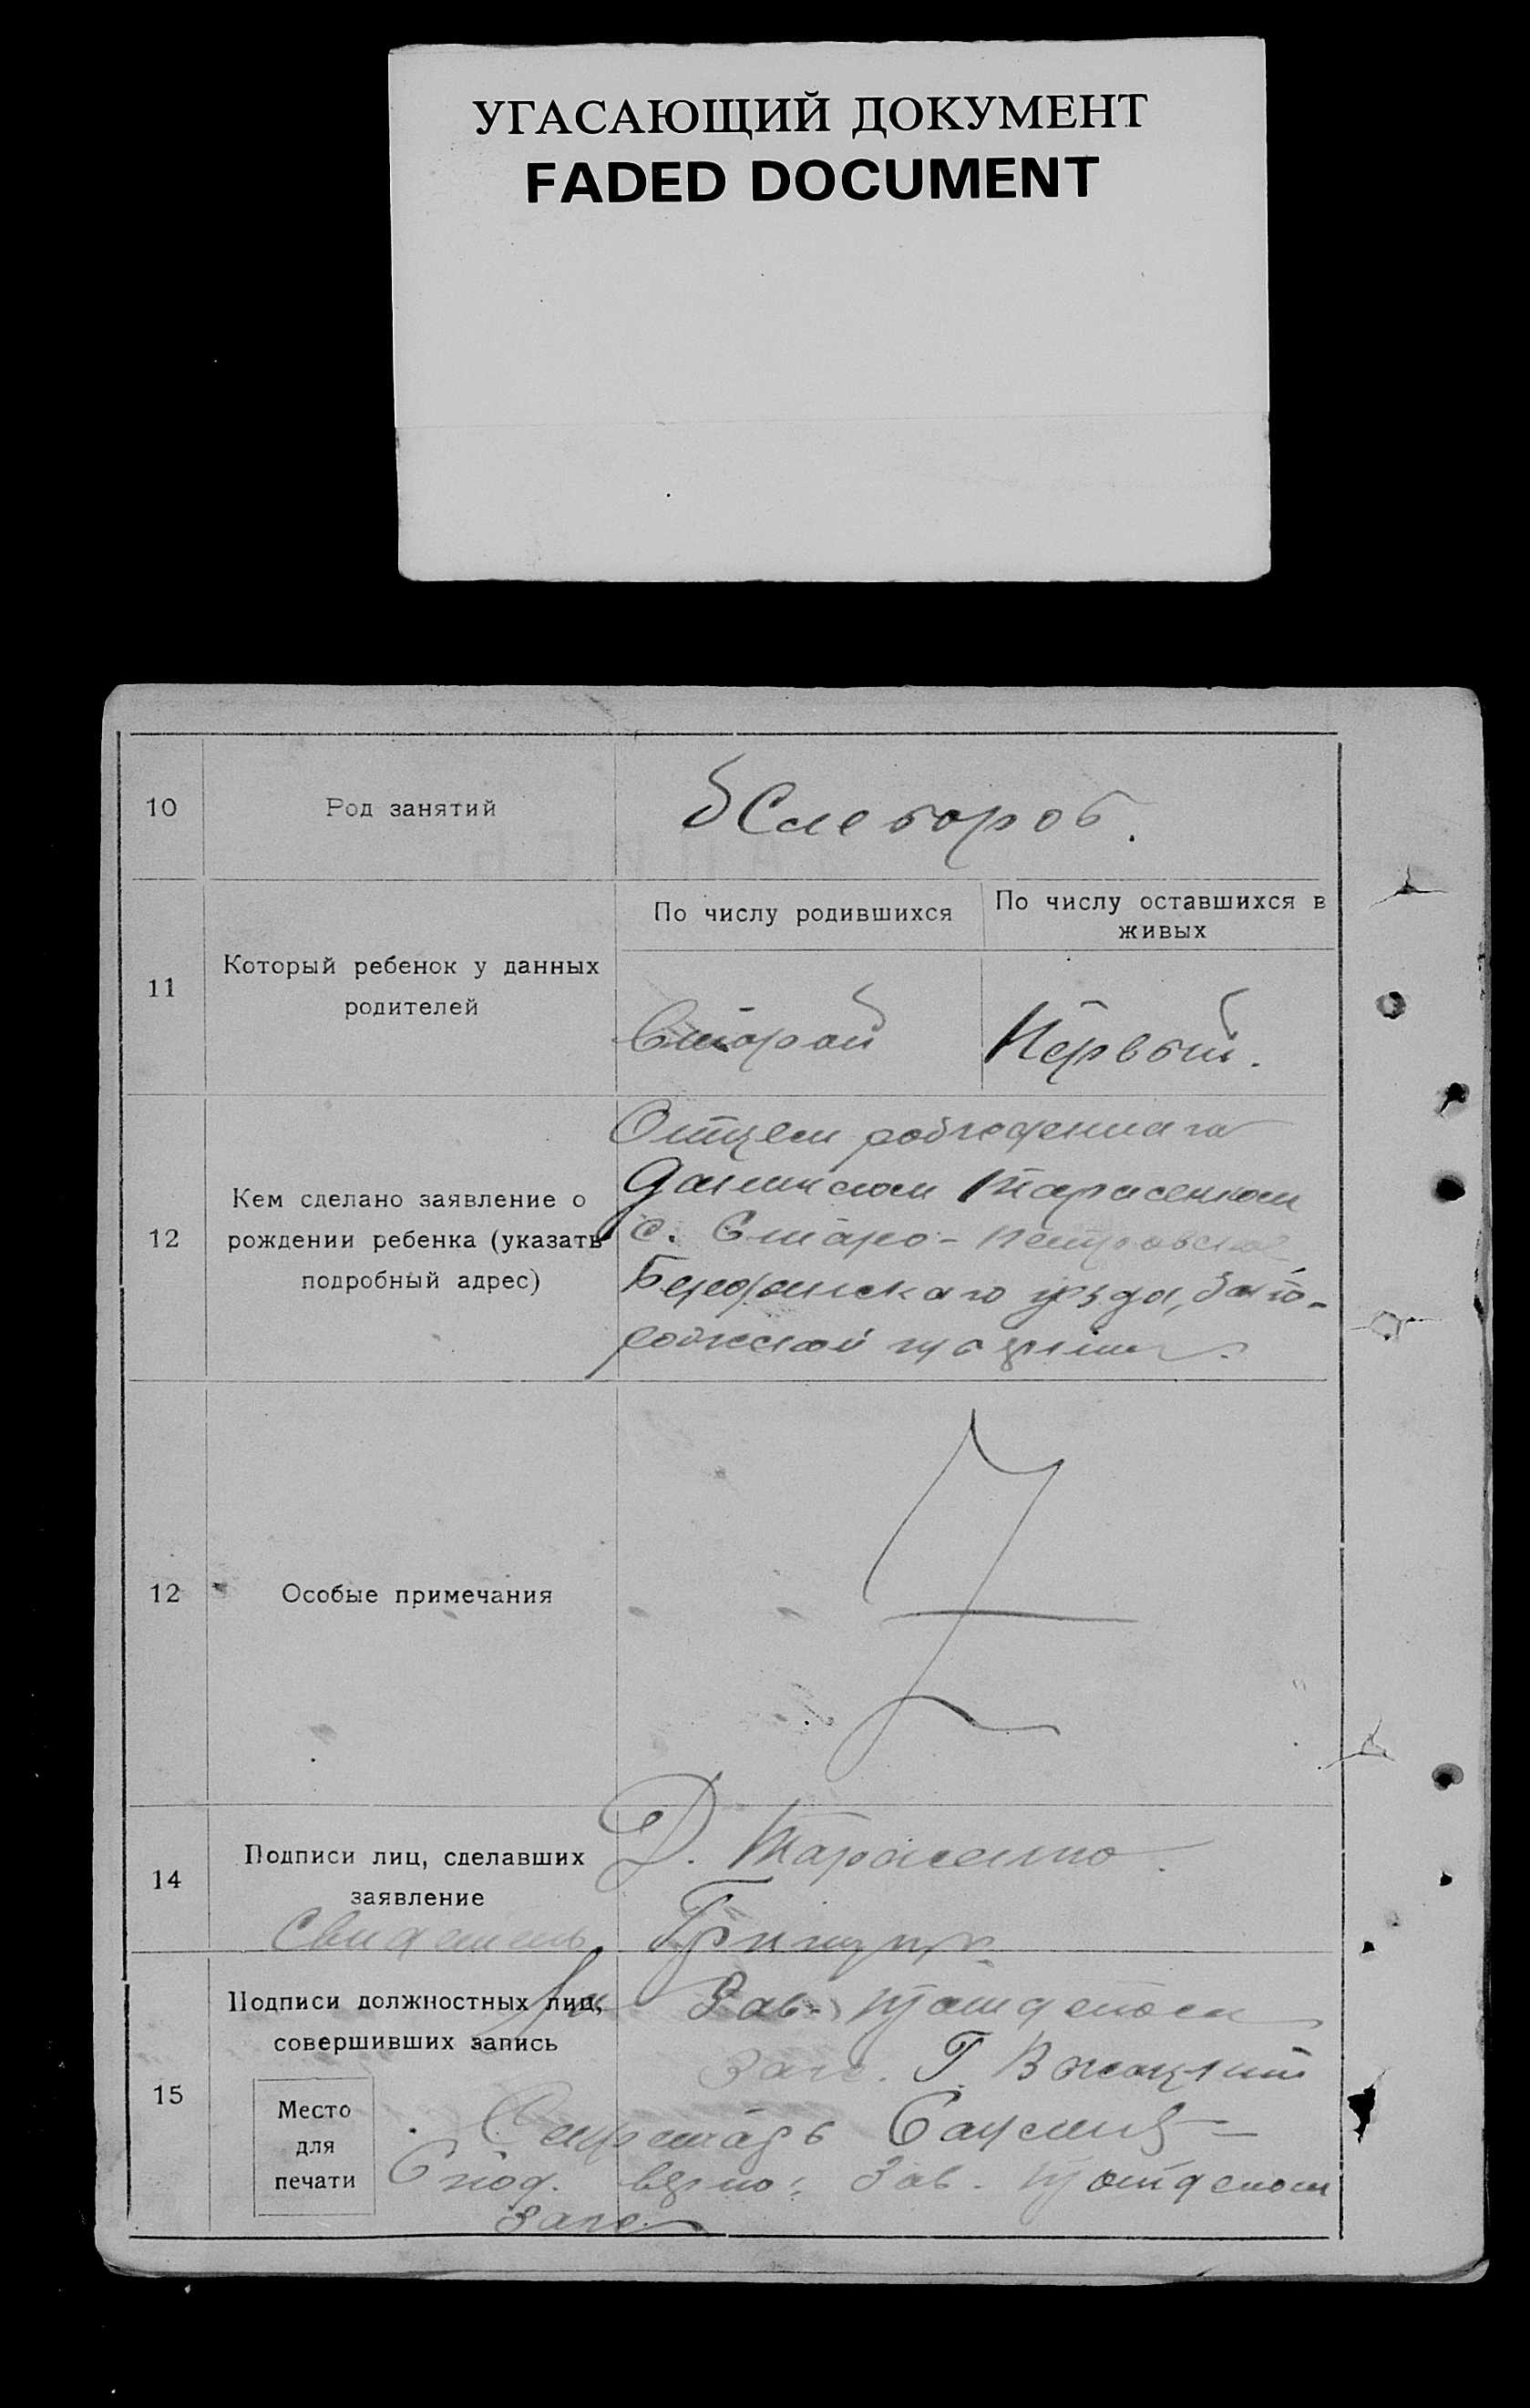 УГАСАЮЩИЙ ДОКУМЕНТ
FADED DOCUMENT
10
Род занятий
Хлебороб.
11
Который ребенок у данных
родителей
По числу родившихся
По числу оставшихся в
живых
Второй
Первый.
12
Кем сделано заявление о
рождении ребенка (указать
подробный адрес)
Отцем
Тарасенком
с. Старо-Петровское
Бердянскаго уезда, Запо-
рожской губернии.
12
Особые примечания
14
Подписи лиц, сделавших
заявление
Свидетель
Д. Тарасенко.
15
Подписи должностных лиц,
совершивших запись
Место
для
печати
Зав.
Загс. Г.
Секретарь
С под. верно: Зав.
Загс.